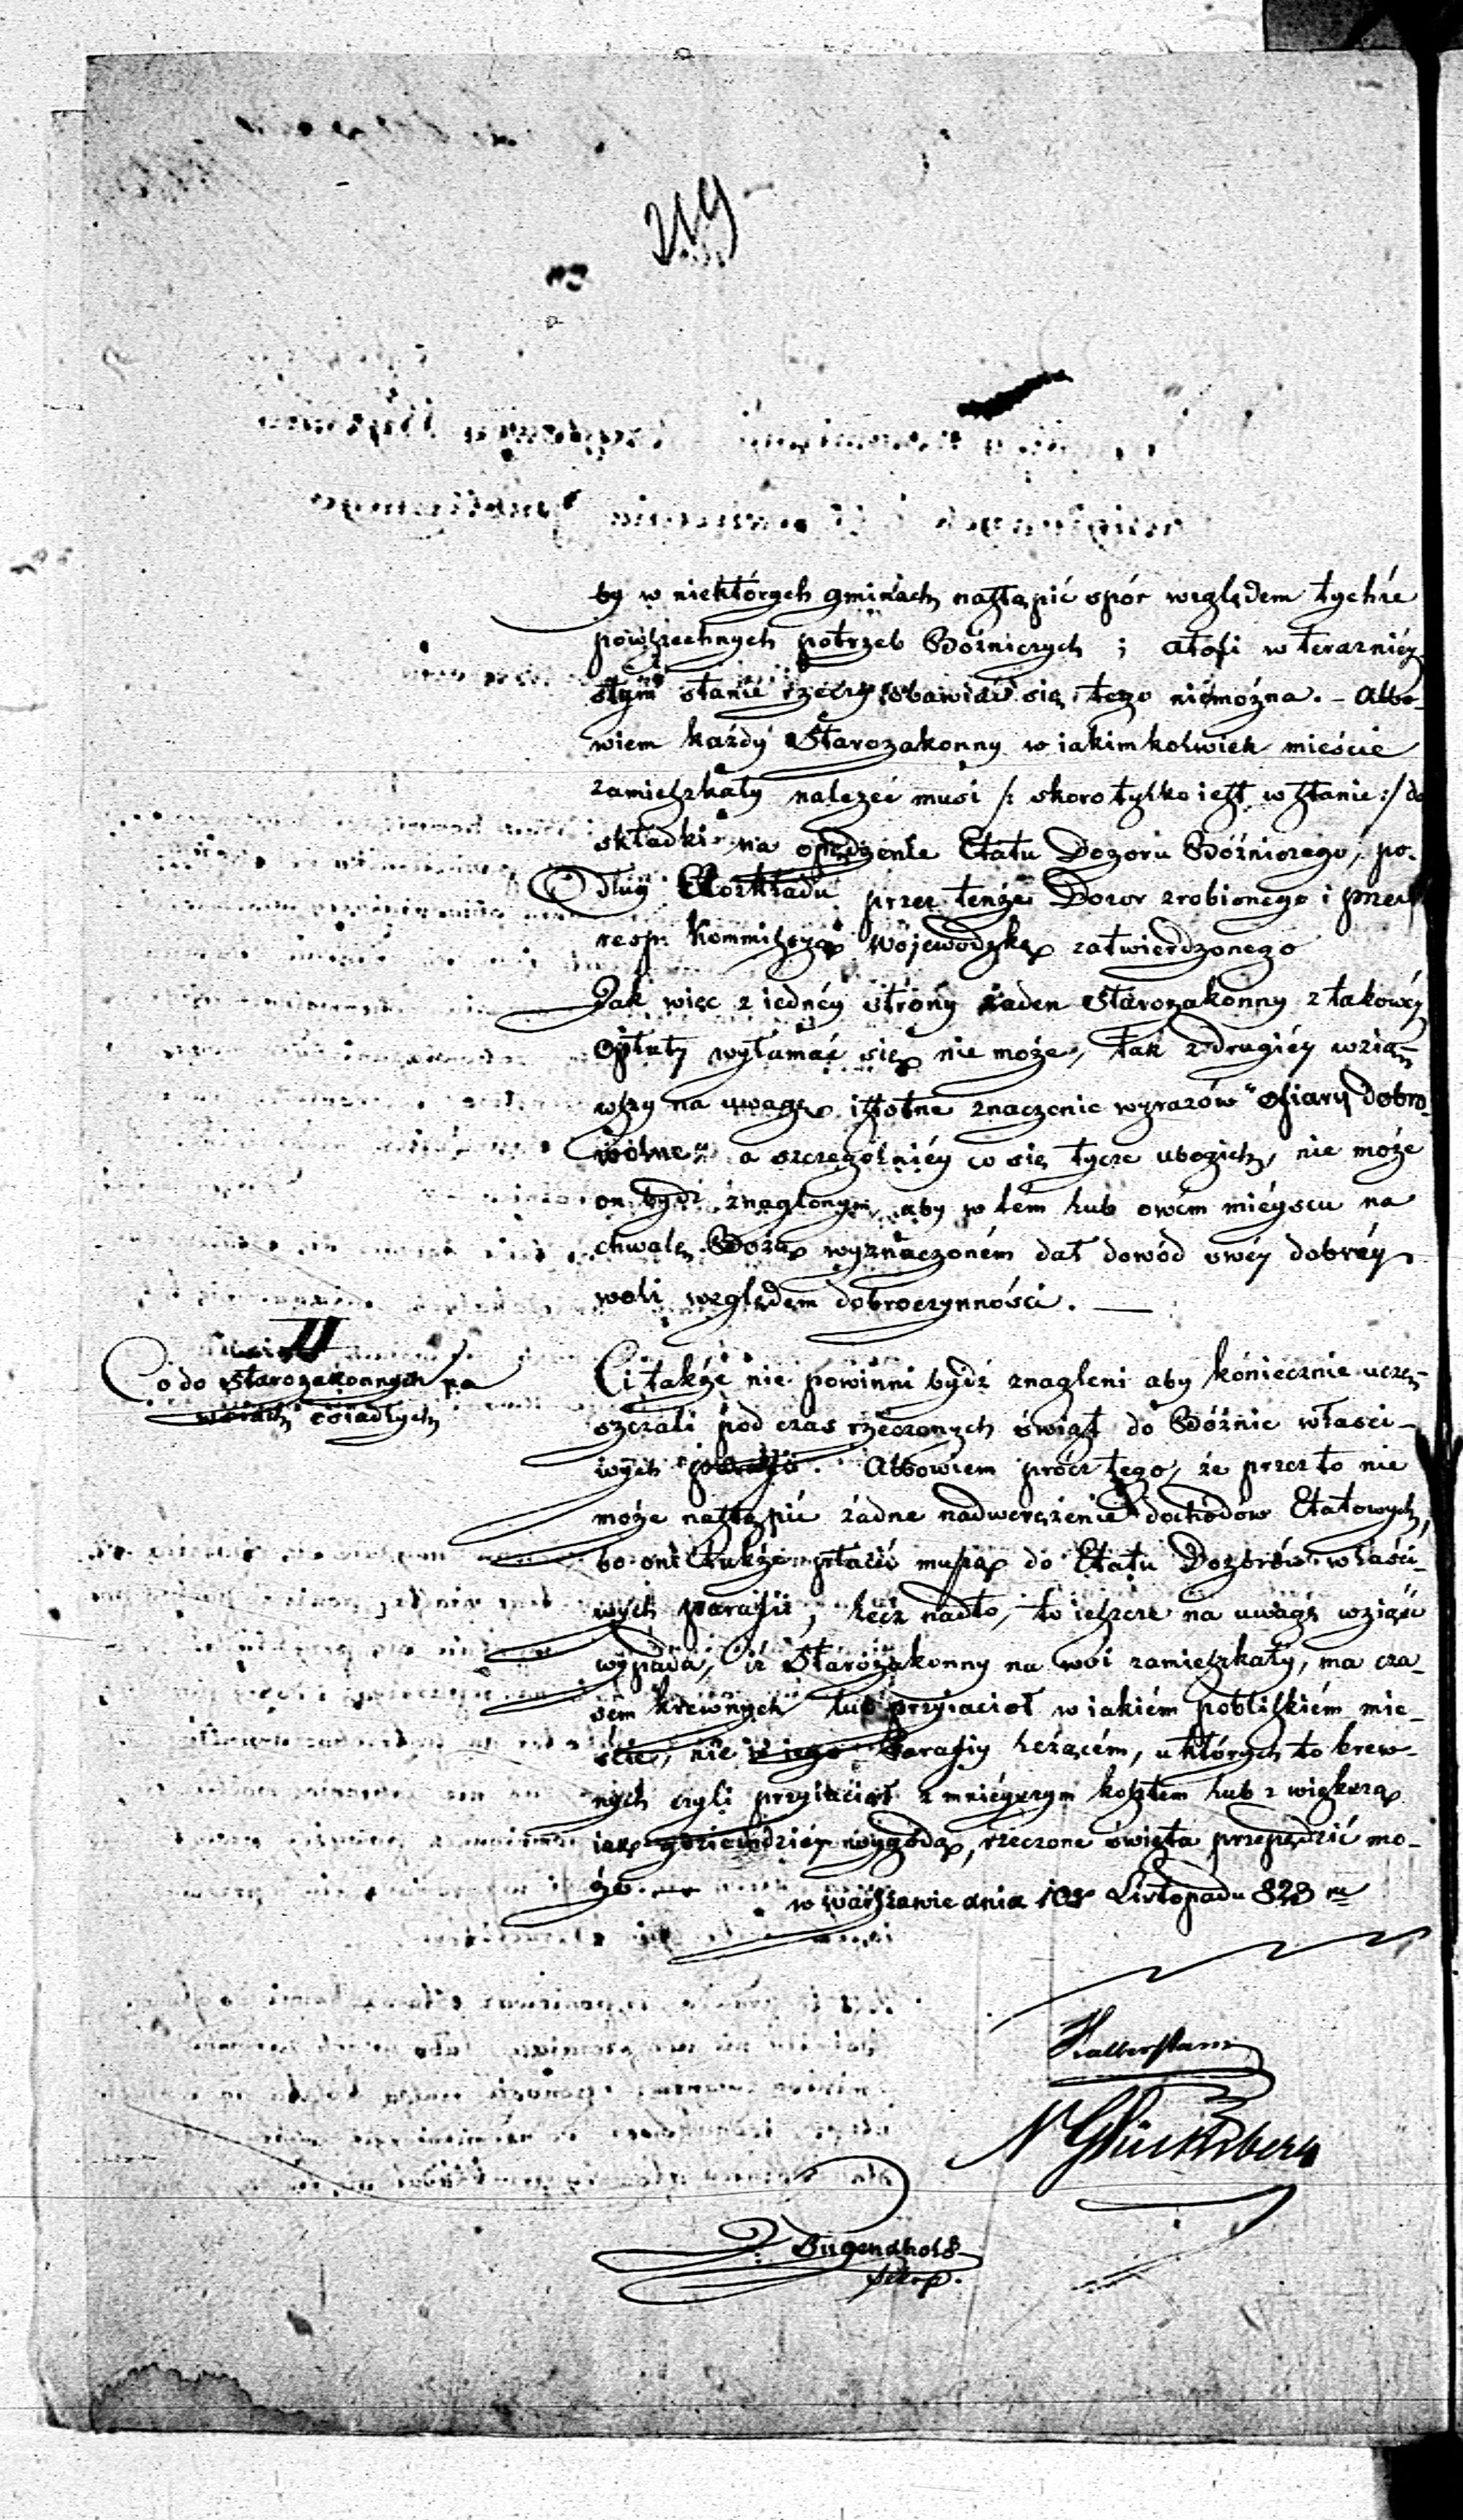 219
by w niektórych gminach nastąpić spór względem tychże
powszechnych potrzeb Bóżniczych ; atoli w teraźniéy-
szym stanie rzeczy obawiać się tego niemożna. – Albo-
wiem każdy Starozakonny w iakimkolwiek mieście
zamieszkały należeć musi /: skoro tylko iest w stanie :/ do
składki na opędzenie Etatu Dozoru Bóżniczego, po-
dług Rozkładu przez tenże Dozor zrobionego i przez
resp: Kommissyą Wojewodzką zatwierdzonego
Jak więc z iednéy strony żaden Starozakonny z takowéy
opłaty wyłamać się nie może, tak z drugiéy wzią-
wszy na uwagę istotne znaczenie wyrazów "ofiary dobro-
wolne" a szczególniéy co się tycze ubogich, nie może
on bydź znaglonym, aby w tém lub owém miéyscu na
chwałę Bożą wyznaczoném dał dowód swéy dobréy
woli względem dobroczynności. —
II
Co do Starozakonnych na
wsiach osiadłych
Ci także nie powinni bydź znagleni aby koniecznie uczę-
szczali pod czas rzeczonych świąt do Bóżnic właści-
wych parafii. Albowiem prócz tego, że przez to nie
może nastąpić żadne nadwerężenie dochodów Etatowych,
bo oni także płacić muszą do Etatu Dozorów właści-
wych parafii, lecz nadto, to ieszcze na uwagę wziąść
wypada, iż Starozakonny na wsi zamieszkały, ma cza-
sem krewnych lub przyiaciół w iakiém pobliskiém mie-
ście, nie w iego Parafiy leżącém, u których to krew-
nych czyli przyiaciół z mniéyszym kosztem lub z większą
iak gdzieindziéy wygodą, rzeczone święta przepędzić mo-
że. —
w Warszawie dnia 10 Listopada 828 r.
Halberstam
N Glücksberg
J. Tugendhold